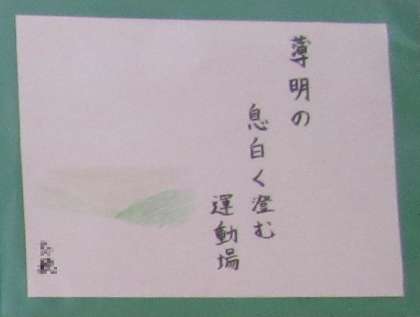 薄明の
息白く澄む
運動場